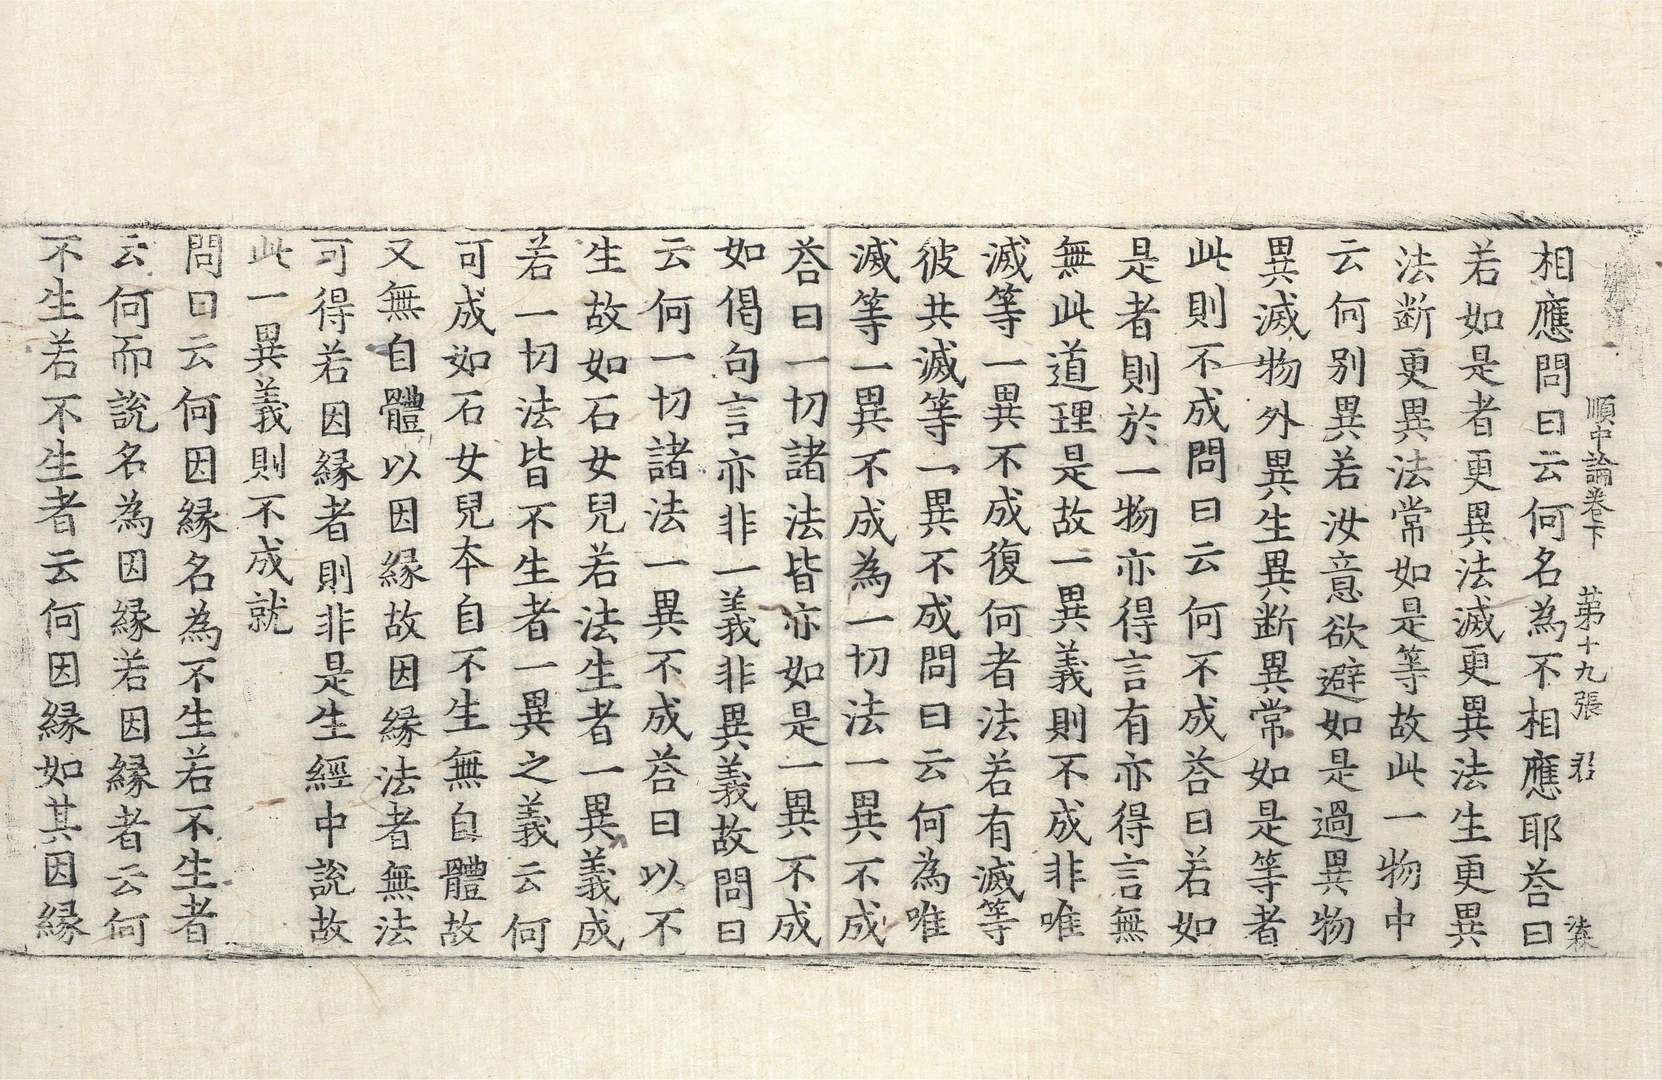 順中論卷下 第十九張 君
相應問曰云何名為不相應耶荅曰
若如是者更異法滅更異法生更異
法斷更異法常如是等故此一物中
云何別異若汝意欲避如是過異物
異滅物外異生異斷異常如是等者
此則不成問曰云何不成荅曰若如
是者則於一物亦得言有亦得言無
無此道理是故一異義則不成非唯
滅等一異不成復何者法若有滅等
彼共滅等一異不成問曰云何為唯
滅等一異不成為一切法一異不成
荅曰一切諸法皆亦如是一異不成
如偈句言亦非一義非異義故問曰
云何一切諸法一異不成荅曰以不
生故如石女兒若法生者一異義成
若一切法皆不生者一異之義云何
可成如石女兒本自不生無自體故
又無自體以因緣故因緣法者無法
可得若因緣者則非是生經中說故
此一異義則不成就
問曰云何因緣名為不生若不生者
云何而說名為因緣若因緣者云何
不生若不生者云何因緣如其因緣